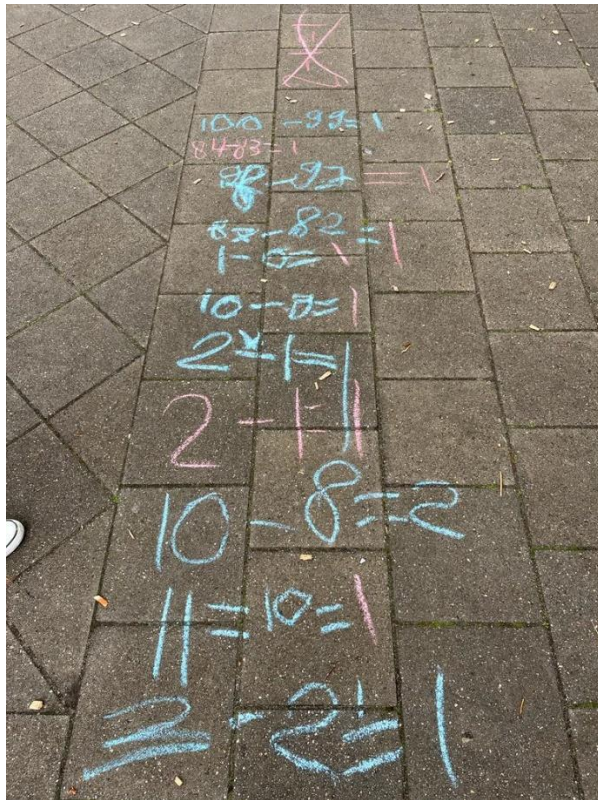 100 - 99 = 1
84-83 = 1
98 - 97 = 1
83 - 82 = 1
1 - 0 = 1
10 - 9 = 1
2 - 1 = 1
2 - 1 = 1
10 - 8 = 2
11 = 10 = 1
3 - 2 = 1